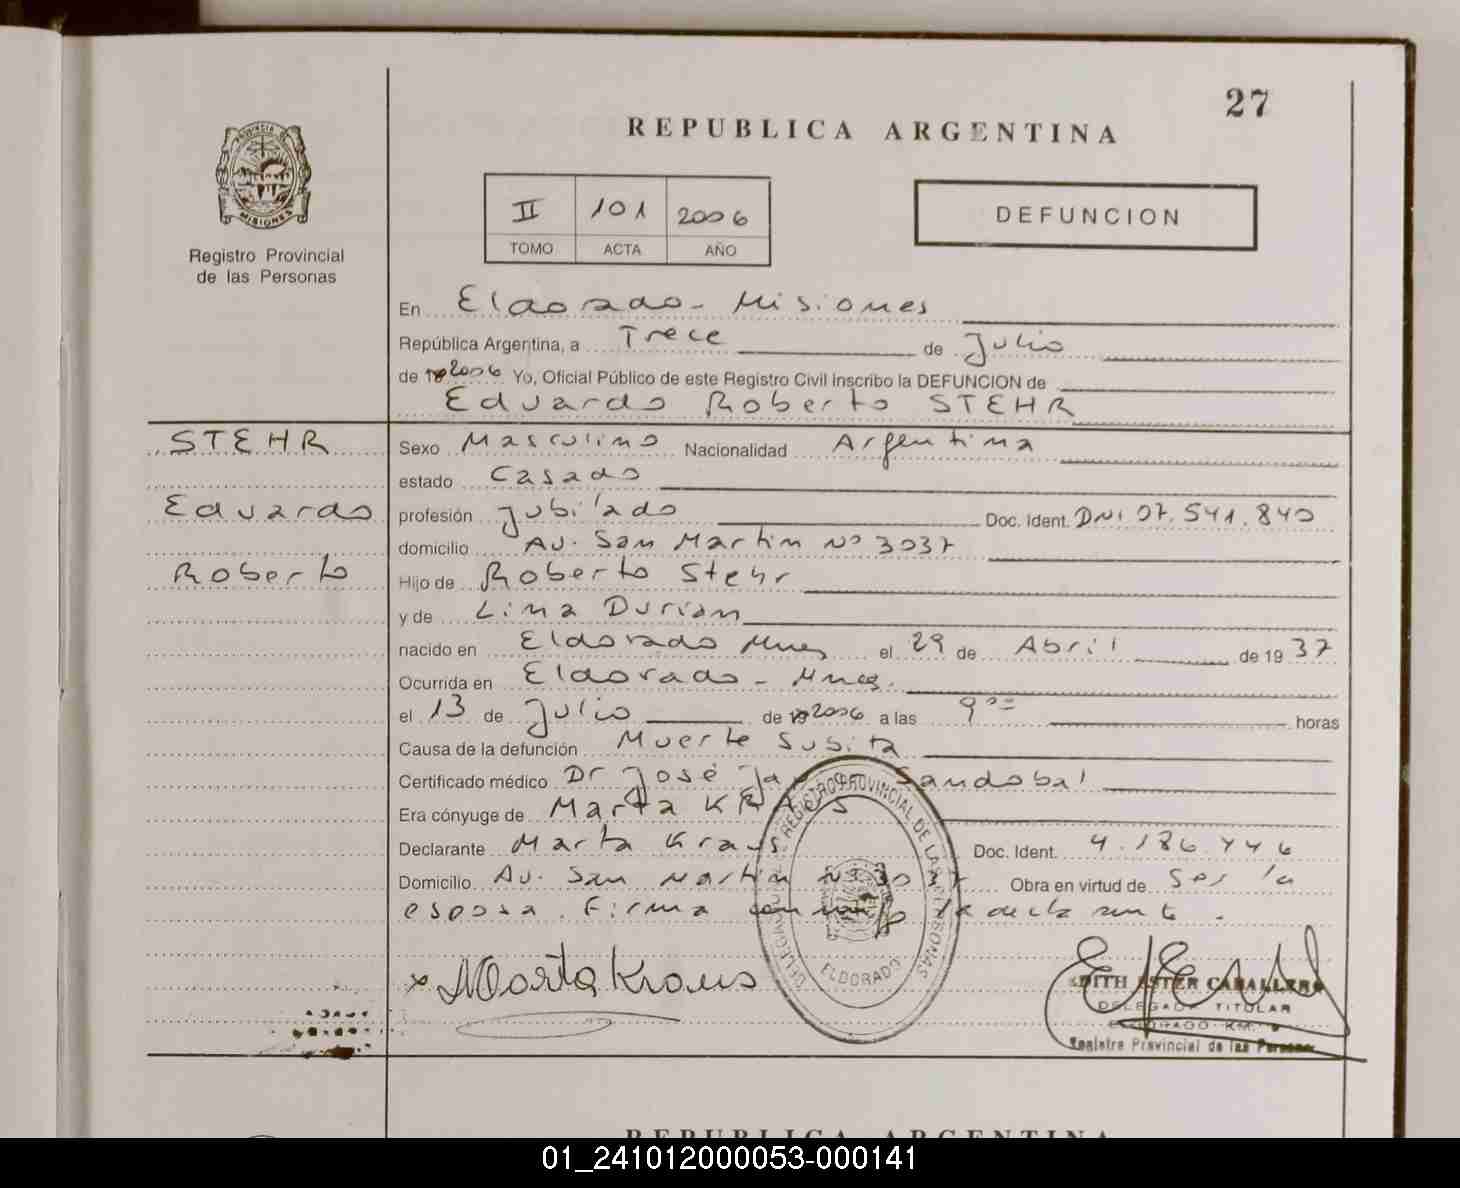 27
REPUBLICA ARGENTINA
PROVINCIA DE
MISIONES
Registro Provincial
de las Personas
II 101 2006
TOMO ACTA AÑO
DEFUNCION
En Eldorado - Misiones
República Argentina, a Trece de Julio
de 2006 Yo, Oficial Público de este Registro Civil Inscribo la DEFUNCION de
Eduardo Roberto STEHR
STEHR
Eduardo
Roberto
Sexo Masculino Nacionalidad Argentina
estado Casado
profesión Jubilado Doc. Ident. DNI 07.541.840
domicilio Av. San Martin Nº 3037
Hijo de Roberto Stehr
y de Lina Durian
nacido en Eldorado Mnes el 29 de Abril de 19 37
Ocurrida en Eldorado - Mnes.
el 13 de Julio de 2006 a las 9°° horas
Causa de la defunción Muerte Subita
Certificado médico Dr José Sandobal
Era cónyuge de Marta KRAUS
Declarante Marta Kraus Doc. Ident. 4.186.446
Domicilio Av. San Martin Nº 3037 Obra en virtud de Ser la
esposa. Firma conmigo la declarante.
x Marta Kraus
REGISTRO PROVINCIAL DE LAS PERSONAS
ELDORADO
EDITH ESTER CABALLERO
DELEGADA TITULAR
ELDORADO KM.
Registro Provincial de las Personas
REPUBLICA ARGENTINA
01_241012000053-000141